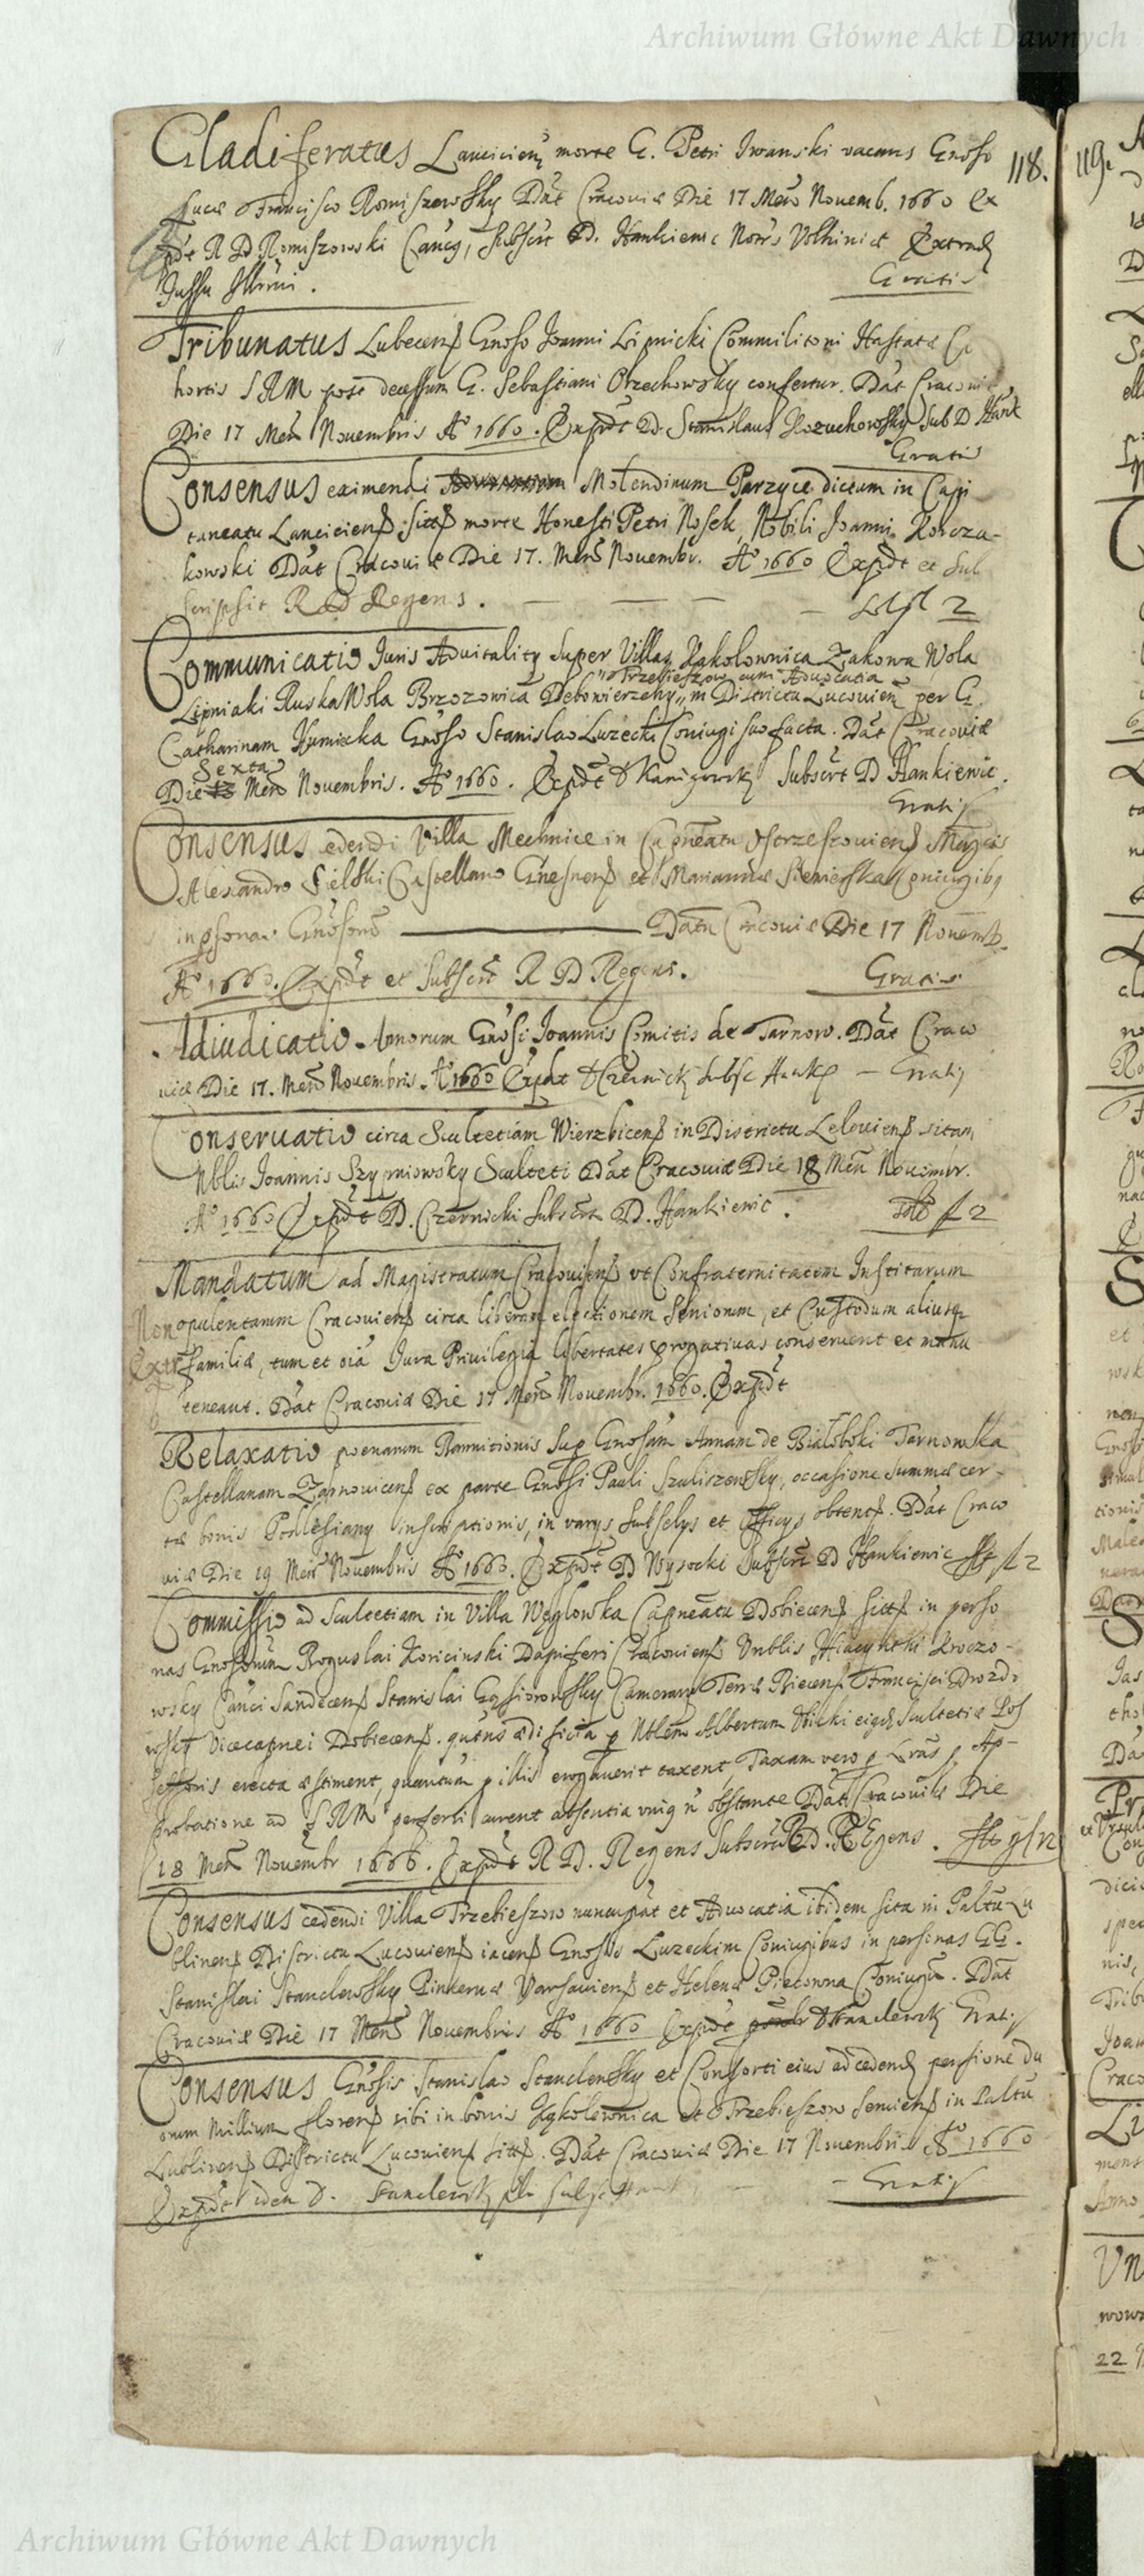 Archiwum Główne Akt Dawnych
118.
Gladiferatus Lanicieñ morte G. Petri Iwanski vacans Gnoso
Lucæ Francisco Romiszowsky Dat Cracoviæ Die 17 Mens Novemb. 1660 Ex
pdt R D Romiszowski Canc, Subscrt D. Hankiewic Notrs Volhiniæ Extrad
Jussu Illmi. Gratis
Tribunatus Lubecens Gnoso Joanni Lipnicki Commilitoni Hastatæ Co
hortis SRM post decessum G. Sebastiani Orzechowsky confertur. Dat Cracoviæ
Die 17 Mens Novembris Aº 1660. Expdt D. Stanislaus Kozuchowsky Sub D Hank
Gratis
Consensus eximendi Molendinum Parzyce dictum in Capi
taneatu Laniciens sitt morte Honesti Petri Nosek, Nobili Joanni Korcza-
kowski Dat Cracoviæ Die 17. Mens Novembr. Aº 1660 Expdt et Sub
scripsit R D Regens. 2
Communicatio Juris Advitalitt Super Villas Kąkolownica Zakowa Wola
Trzebieszow cum Advocatia
Lipniaki Ruska Wola Brzozowica Debowierzchy in Districtu Lucovien per G.
Catharinam Kumiecka Gnoso Stanislao Luzecki Coniugi suo facta. Dat Cracoviæ
Sexta
Die Mens Novembris. Aº 1660. Expdt D Subscrt D Hankiewic.
Gratis
Consensus cedendi Villa Mechnice in Capneatu Ostrzeszoviens Magcis
Alexandro Sielski Castellano Gnesnens et Mariannæ Sieniewska Coniugibs
in psonas Gnosorū Datū Cracoviæ Die 17 Novemb.
Aº 1660. Expdt et Subscrt R D Regens. Gratis
Adiudicatio Annorum Gnosi Joannis Comitis de Tarnow. Dat Craco
viæ Die 17. Mens Novembris. Aº 1660 Expdt D Czernick Subsc Hank Gratis
Conservatio circa Scultetiam Wierzbicens in Districtu Leloviens sitam
Nblis Joannis Szymiowsky Sculteti Dat Cracoviæ Die 18 Mens Novembr.
Aº 1660 Expdt D. Czernicki Subscrt D. Hankiewic. fl 2
Mandatum ad Magistratum Cracoviens vt Confraternitatem Institarum
Non opulentarum Cracoviens circa liberam electionem Seniorum, et Custodum aliusq
Extr familiæ, tum et oia Jura Privilegia libertates progativas conservent et manu
teneant. Dat Cracoviæ Die 17 Mens Novembr. 1660. Expdt
Relaxatio poenarum Bannitionis Sup Gnosam Annam de Białoboki Tarnowska
Castellanam Zarnovicens ex parte Gnosi Pauli Szuliszewsky, occasione summæ cer-
tæ bonis Podlesiany inscriptionis, in varys Subselys et Officys obtent. Dat Craco
viæ Die 19 Mens Novembris Aº 1660. Expdt D Wysocki Subscrt D Hankiewic fl 2
Commissio ad Scultetiam in Villa Węglowka Capneatu Dobiecens sitt in perso
nas Gnosorum Boguslai Koricinski Dapiferi Cracoviens Vnblis Hiacynthi Kroczo-
wsky Canci Sandecens Stanislai Gąsiorowsky Camerarij Terræ Biecens Francisci Drozdo
wsky Vicecapnei Dobiecens. quatnus ædificia p Nblem Albertum Bicki eigd Scultetiæ Pos
sessoris erecta æstiment, quantum p illis erogaverit taxent, Taxam vero p Lras p Ap-
probatione ad SRM perferri curent absentia vnig n obstante Dat Cracoviæ Die
18 Mens Novembr 1660. Expdt R D. Regens Subscrt R D. Regens.
Consensus cedendi Villa Trzebieszow nuncupat et Advocatia ibidem sita in Paltu Lu
blinens Districtu Lucoviens iacens Gnosis Luzeckim Coniugibus in personas GG.
Stanislai Stanclewsky Pincernæ Varsaviens et Helenæ Pietowna Coniugū. Dat
Cracoviæ Die 17 Mens Novembris Aº 1660 Expdt D Stanclewsk Gratis
Consensus Gnosis Stanislao Stanclewsky et Consorti eius ad cedend persione du
orum Millium florens sibi in bonis Kąkolewnica et Trzebieszow serviens in Paltu
Lublinens Districtu Lucoviens sitt. Dat Cracoviæ Die 17 Novembris Aº 1660
Expdt idem D. Stanclewsk Gratis
119.
Archiwum Główne Akt Dawnych